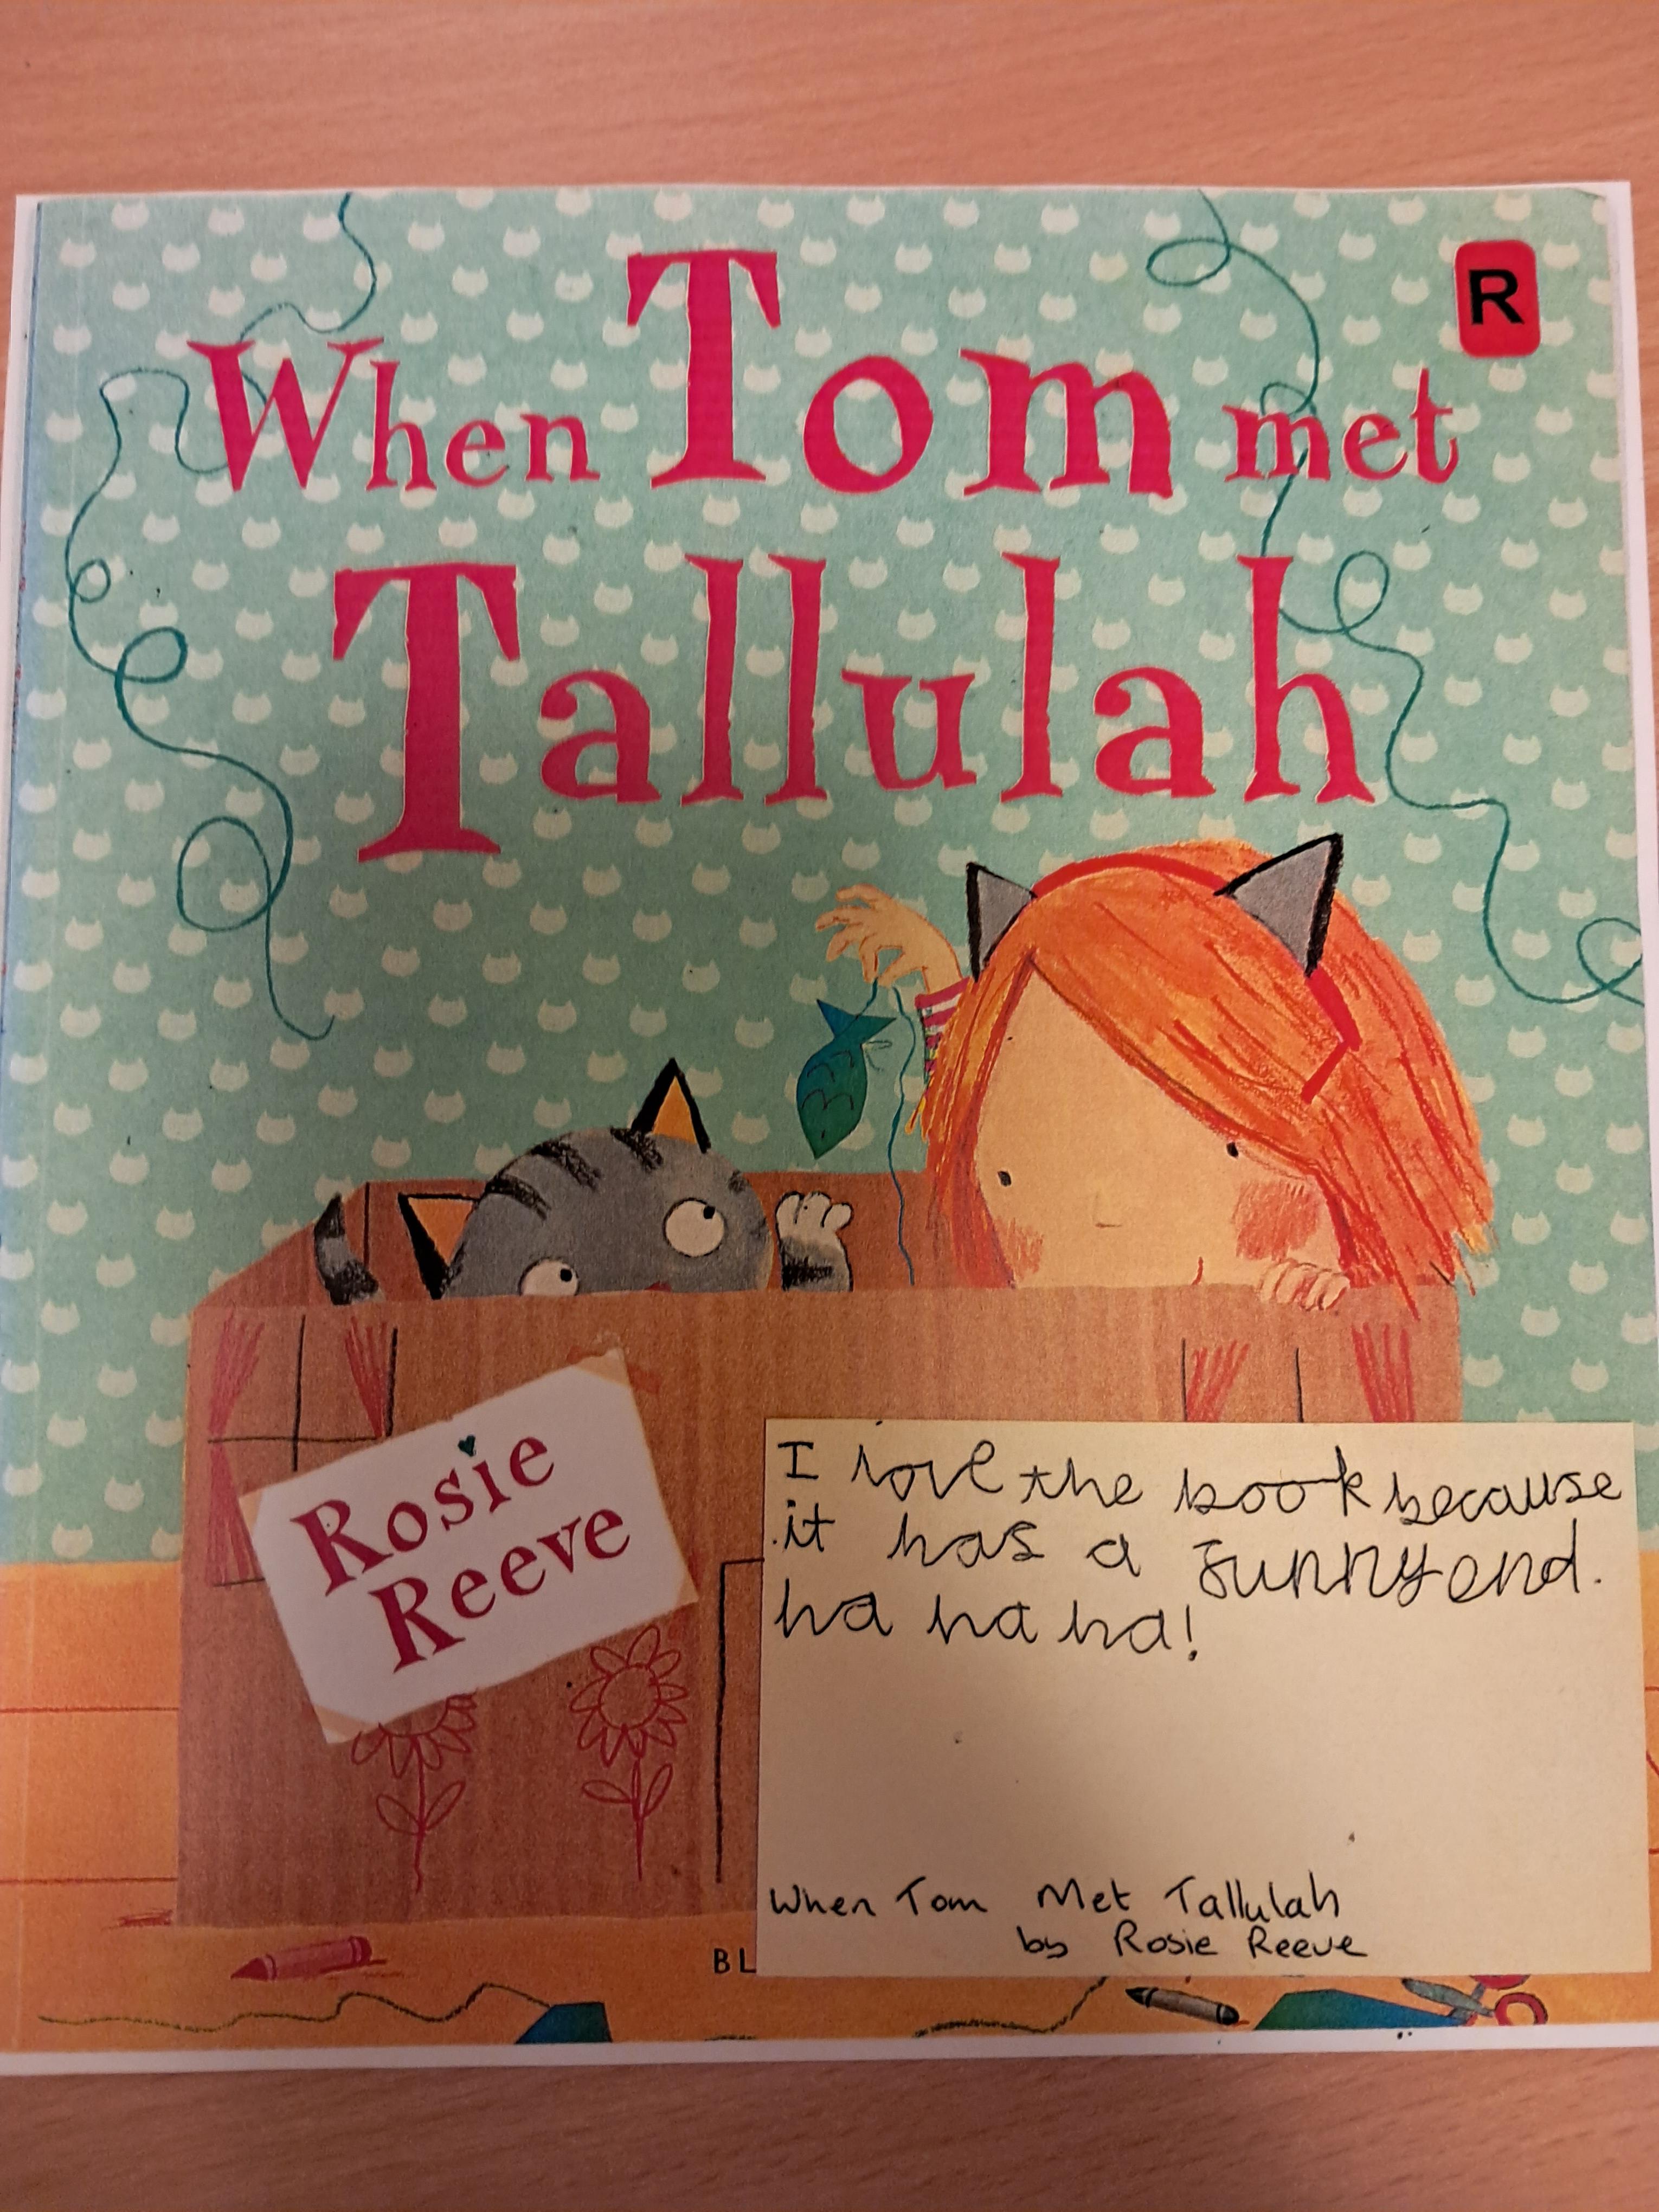 R
When Tom met
Tallulah
Rosie
Reeve
I love the book because
it has a funny end.
ha ha ha!
When Tom Met Tallulah
by Rosie Reeve
BL